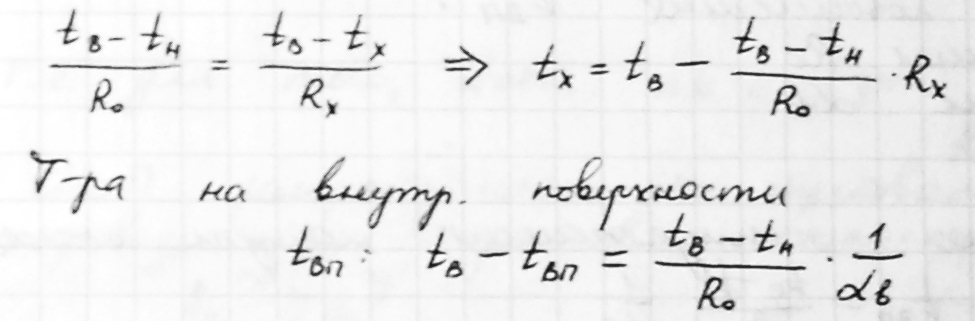 (t_в − t_н)/R₀ = (t_в − t_х)/R_х ⇒ t_х = t_в − (t_в − t_н)/R₀ · R_х
Т-ра на внутр. поверхности
t_вп: t_в − t_вп = (t_в − t_н)/R₀ · 1/α_в